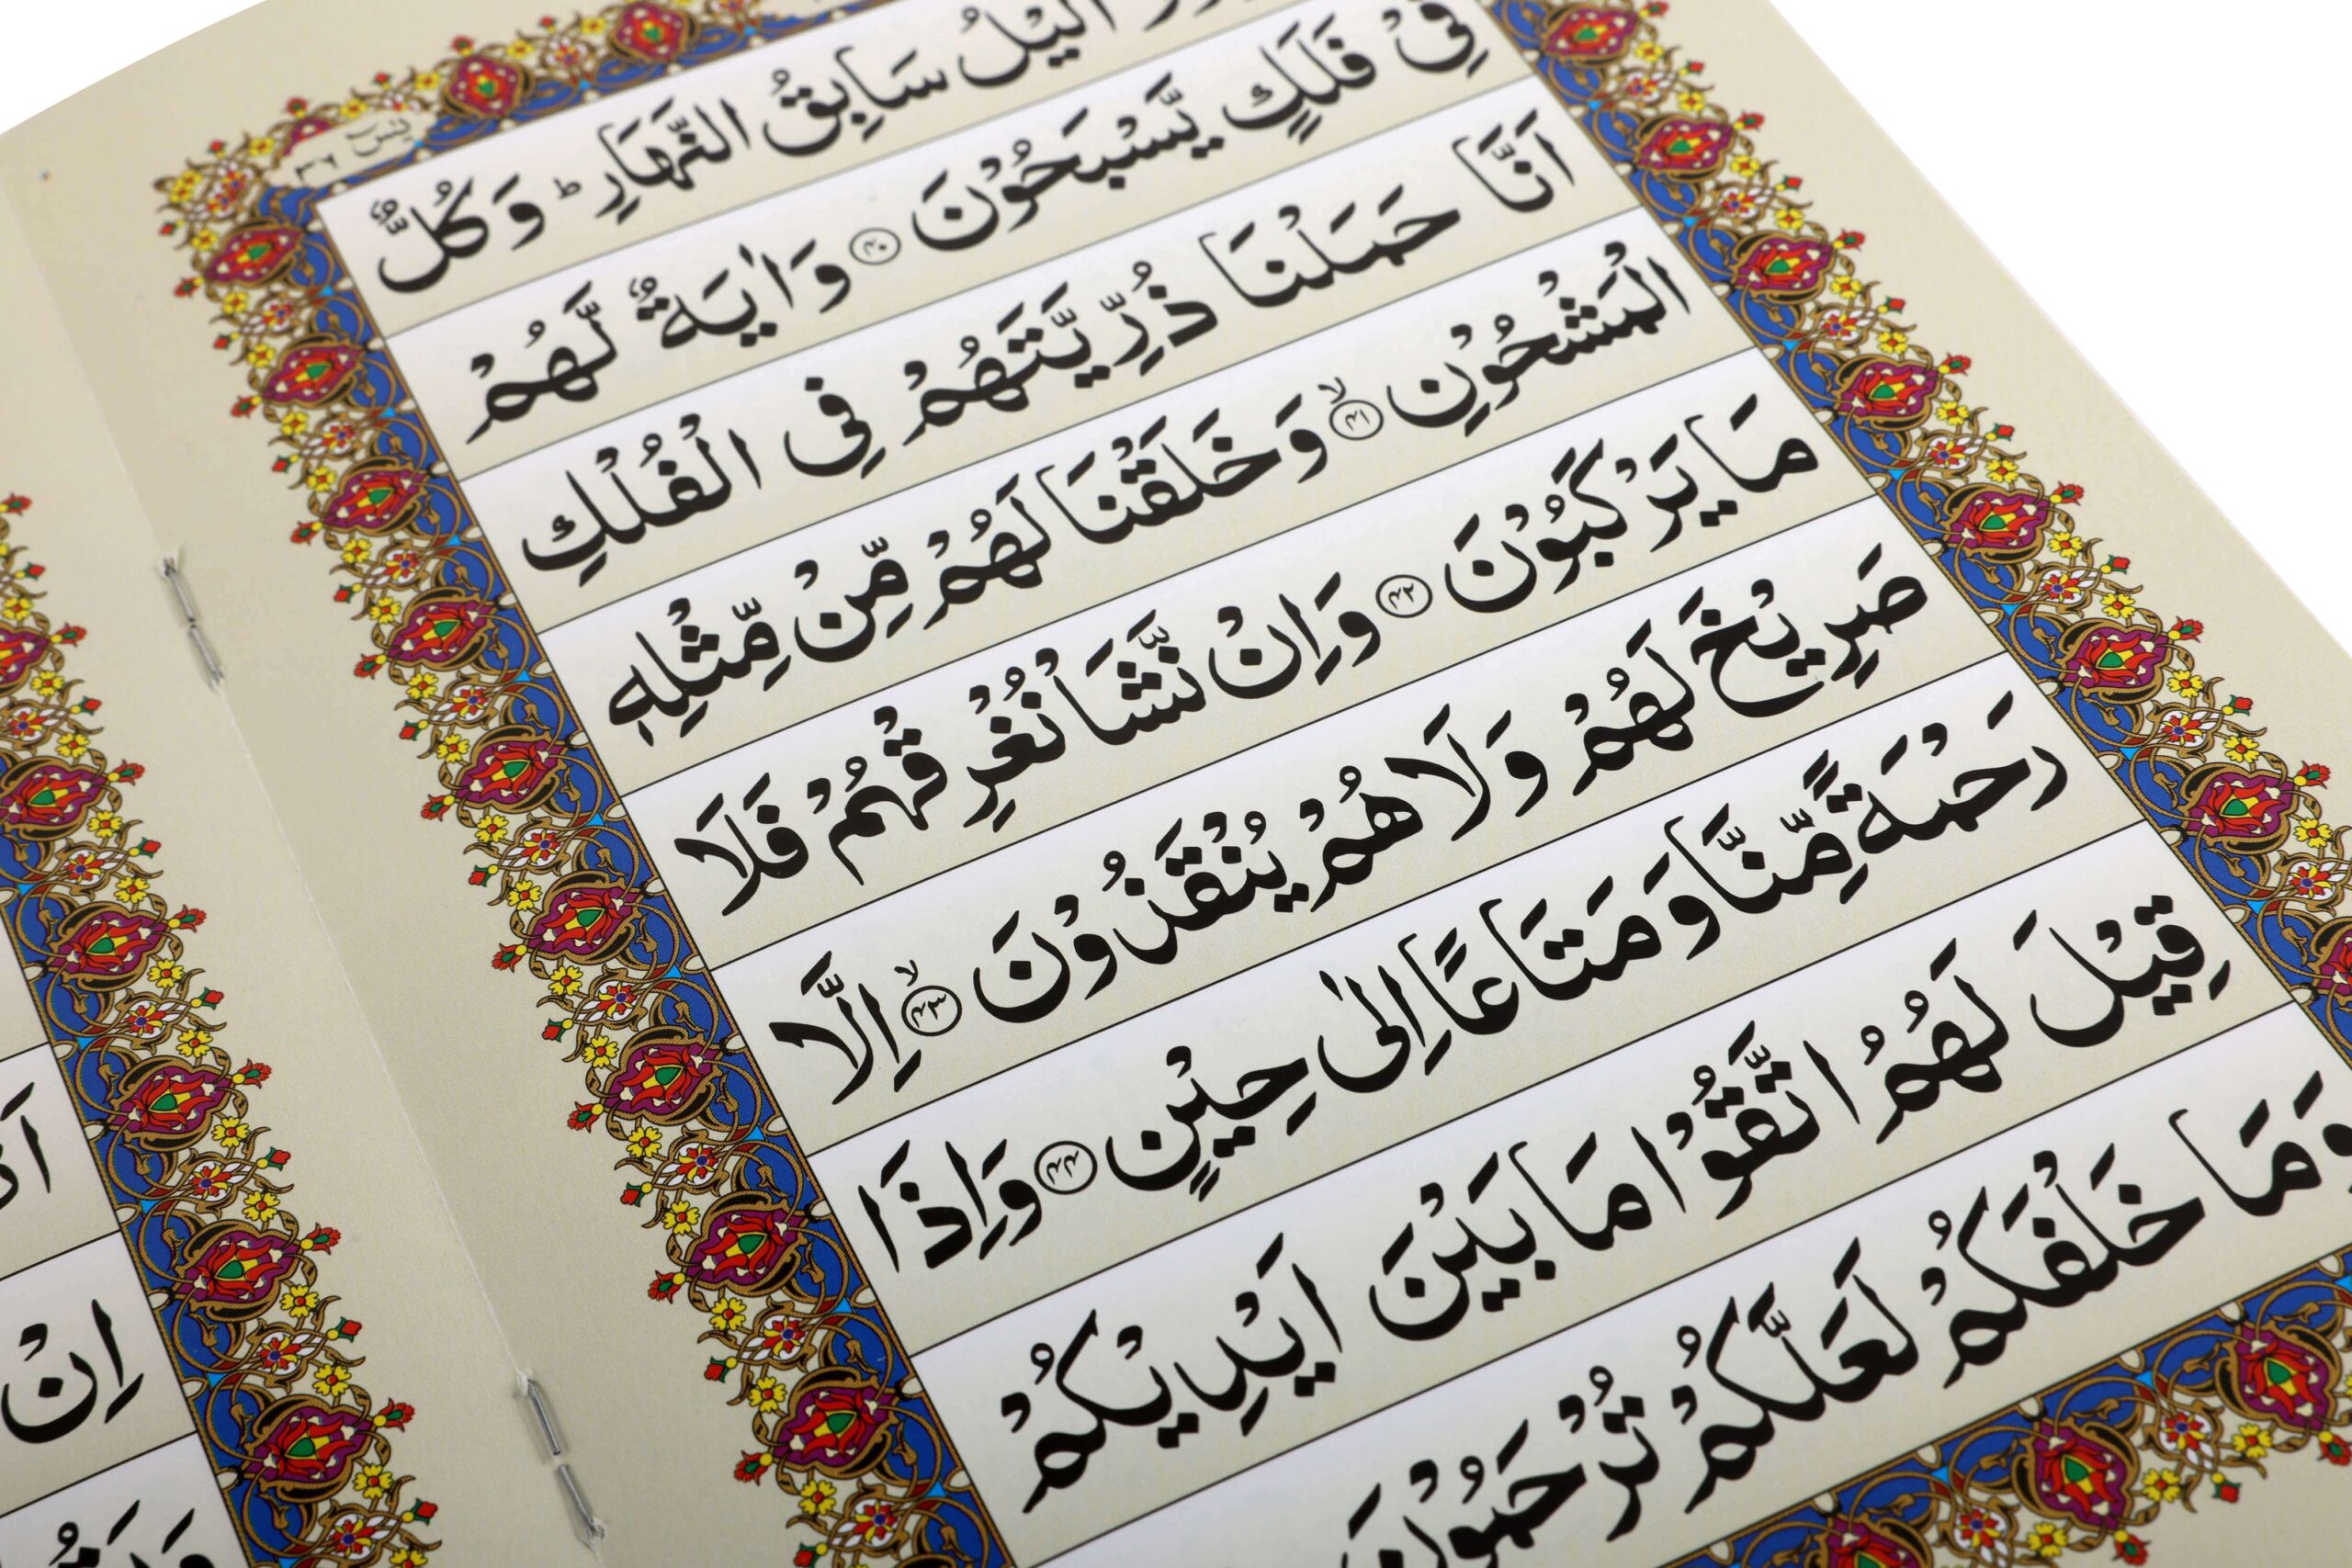 يٰسٓ ٣٦
الَّيْلُ سَابِقُ النَّهَارِ ؕ وَكُلٌّ
فِىْ فَلَكٍ يَّسْبَحُوْنَ ﴿۴۰﴾ وَاٰيَةٌ لَّهُمْ
اَنَّا حَمَلْنَا ذُرِّيَّتَهُمْ فِى الْفُلْكِ
الْمَشْحُوْنِ ﴿۴۱﴾ۙ وَخَلَقْنَا لَهُمْ مِّنْ مِّثْلِهٖ
مَا يَرْكَبُوْنَ ﴿۴۲﴾ وَاِنْ نَّشَاْ نُغْرِقْهُمْ فَلَا
صَرِيْخَ لَهُمْ وَلَا هُمْ يُنْقَذُوْنَ ﴿۴۳﴾ۙ اِلَّا
رَحْمَةً مِّنَّا وَمَتَاعًا اِلٰى حِيْنٍ ﴿۴۴﴾ وَاِذَا
قِيْلَ لَهُمُ اتَّقُوْا مَا بَيْنَ اَيْدِيْكُمْ
وَمَا خَلْفَكُمْ لَعَلَّكُمْ تُرْحَمُوْنَ
اِنْ